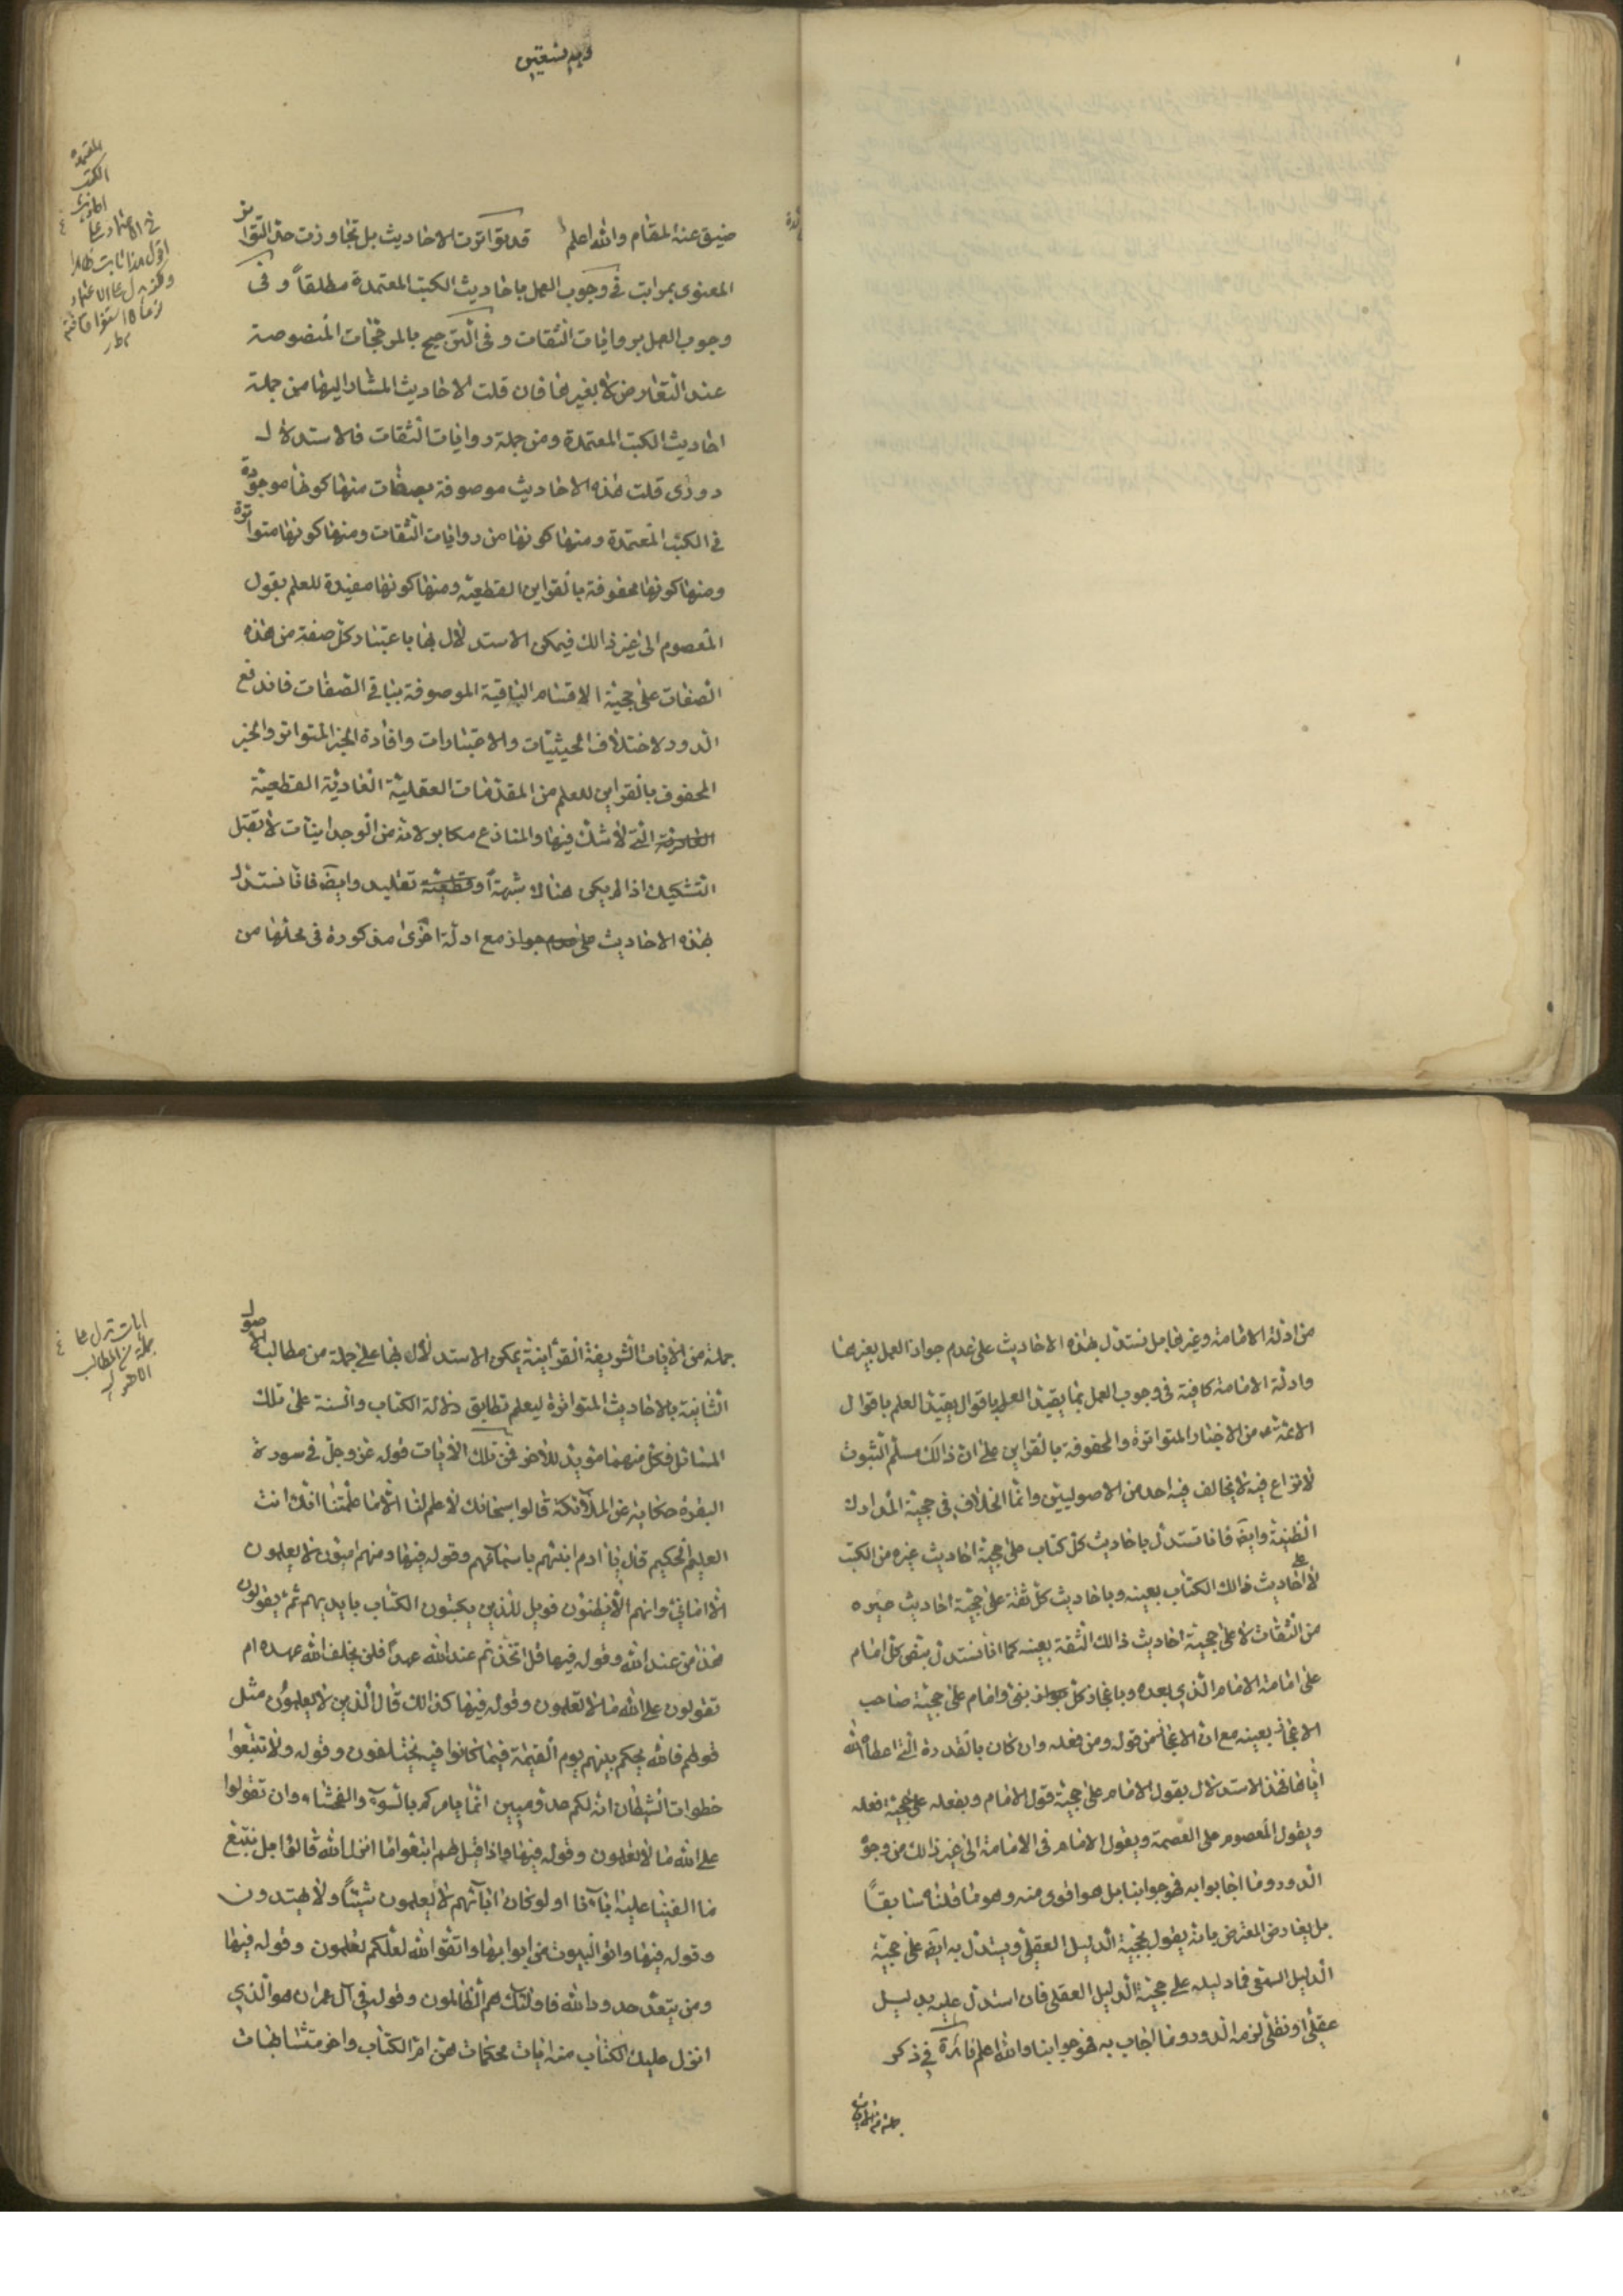 وبه نستعين
ضيق عنه المقام والله اعلم قد تواترت الاحاديث بل تجاوزت حد التواتر
المعنوى بمراتب فى وجوب العمل باحاديث الكتب المعتمدة مطلقاً وفى
وجوب العمل بروايات الثقات وفى الترجيح بالمرجحات المنصوصة
عند التعارض لا بغيرها فان قلت الاحاديث المشار اليها من جملة
احاديث الكتب المعتمدة ومن جملة روايات الثقات فالاستدلال
دورى قلت هذه الاحاديث موصوفة بصفات منها كونها موجودة
فى الكتب المعتمدة ومنها كونها من روايات الثقات ومنها كونها متواترة
ومنها كونها محفوفة بالقراين القطعية ومنها كونها مفيدة للعلم بقول
المعصوم الى غير ذالك فيمكن الاستدلال بها باعتبار كل صفة من هذه
الصفات على حجية الاقسام الباقية الموصوفة بباقى الصفات فاندفع
الدور لاختلاف الحيثيات والاعتبارات وافادة الخبر المتواتر والخبر
المحفوف بالقراين للعلم من المقدمات العقلية العادية القطعية
التى لا شك فيها والمنازع مكابر لانه من الوجدانيات لا تقبل
التشكيك اذا لم يكن هناك شبهة او تقليد وايضً فانا نستدل
بهذه الاحاديث مع ادلة اخرى مذكورة فى محلها من
المعتمدة
الكتب
احاديث
فى الاعتماد على
اقول هذا ثابت
من ادلة الامامة وغيرها بل نستدل بهذه الاحاديث على عدم جواز العمل بغيرها
وادلة الامامة كافية فى وجوب العمل بما يفيد العلم باقوال
الائمة ع من الاخبار المتواترة والمحفوفة بالقراين على ان ذالك مسلم الثبوت
لا نزاع فيه لا يخالف فيه احد من الاصوليين وانما الخلاف فى حجية المدارك
الظنية وايضً فانا نستدل باحاديث كل كتاب على حجية احاديث غيره من الكتب
لا على احاديث ذالك الكتاب بعينه وباحاديث كل ثقة على حجية احاديث غيره
من الثقات لا على حجية احاديث ذالك الثقة بعينه كما انا نستدل بنص كل امام
على امامة الامام الذي بعده وباعجاز كل نبى وامام على حجية صاحب
الاعجاز بعينه مع ان الاعجاز من قوله ومن فعله وان كان بالقدرة التى اعطاه الله
اياها فهذا الاستدلال بقول الامام على حجية قول الامام وبفعله على حجية فعله
وبقول المعصوم على العصمة وبقول الامام فى الامامة الى غير ذالك من وجوه
الدور وما اجابوا به فهو جوابنا بل هو اقوى منه وهو ما قلناه سابقاً
بل يعارض المعترض بانه يقول بحجية الدليل العقلى ويستدل به ايضً على حجية
الدليل السمعى فما دليله على حجية الدليل العقلى فان استدل عليه بدليل
عقلى او نقلى لزمه الدور وما اجاب به فهو جوابنا والله اعلم فائدة فى ذكر
جملة من الايات
جملة من الايات الشريفة القرآنية يمكن الاستدلال بها على جملة من مطالب الاصول
الثانية بالاحاديث المتواترة ليعلم تطابق دلالة الكتاب والسنة على تلك
المسائل فكل منهما مؤيد للاخر فمن تلك الايات قوله عز وجل فى سورة
البقرة حكاية عن الملائكة قالوا سبحانك لا علم لنا الا ما علمتنا انك انت
العليم الحكيم قال يا ادم انبئهم باسمائهم وقوله فيها ومنهم اميون لا يعلمون
الا امانى وانهم الا يظنون فويل للذين يكتبون الكتاب بايديهم ثم يقولون
هذا من عند الله وقوله فيها قل اتخذتم عند الله عهداً فلن يخلف الله عهده ام
تقولون على الله ما لا تعلمون وقوله فيها كذالك قال الذين لا يعلمون مثل
قولهم فالله يحكم بينهم يوم القيمة فيما كانوا فيه يختلفون وقوله ولا تتبعوا
خطوات الشيطان انه لكم عدو مبين انما يامركم بالسوء والفحشاء وان تقولوا
على الله ما لا تعلمون وقوله فيها واذا قيل لهم اتبعوا ما انزل الله قالوا بل نتبع
ما الفينا عليه اباءنا اولو كان اباؤهم لا يعلمون شيئاً ولا يهتدون
وقوله فيها واتوا البيوت من ابوابها واتقوا الله لعلكم تفلحون وقوله فيها
ومن يتعد حدود الله فاولئك هم الظالمون وقوله فى آل عمران هو الذي
انزل عليك الكتاب منه ايات محكمات هن ام الكتاب واخر متشابهات
ايات تدل على
جملة من المطالب